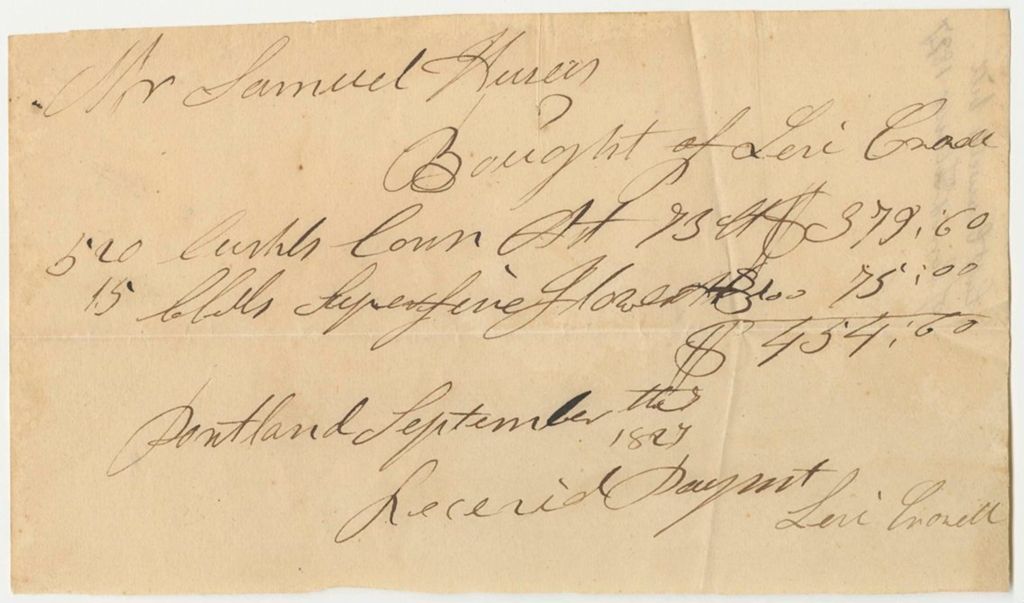 Mr Samuel
Bought of Levi
520 bushls Corn At 73 ct $ 379:60
15 bbls Superfine Flower At $5.00 75:00
$ 454:60
Portland September the
1827
Receevid Paymt
Levi Crowell